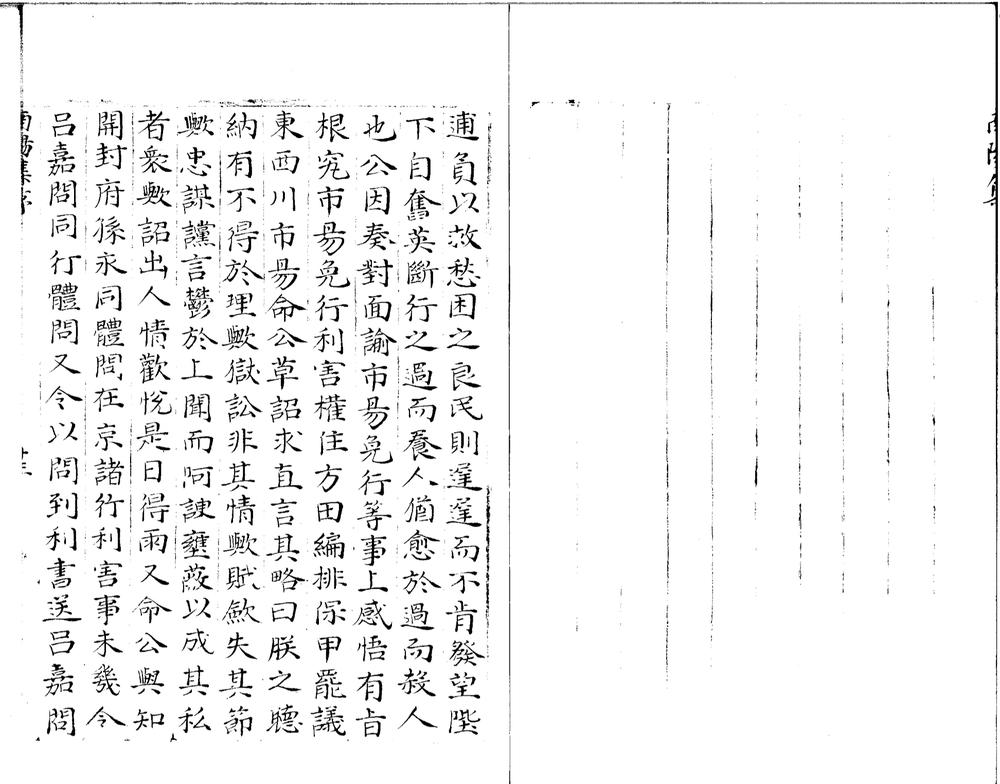 逋負以救愁困之良民則遲遲而不肯發望陛
下自奮英斷行之過而養人猶愈於過而殺人
也公因奏對面諭市易免行等事上感悟有旨
根究市易免行利害權住方田編排保甲罷議
東西川市易命公草詔求直言其略曰朕之聽
納有不得於理歟獄訟非其情歟賦斂失其節
歟忠謀讜言鬱於上聞而阿諛壅蔽以成其私
者衆歟詔出人情歡悅是日得雨又命公與知
開封府孫永同體問在京諸行利害事未幾令
呂嘉問同行體問又令以問到利害送呂嘉問
南陽集序